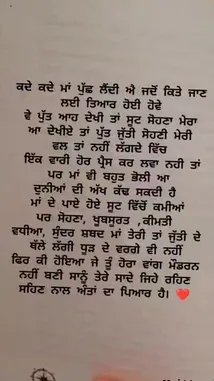 ਕਦੇ ਕਦੇ ਮਾਂ ਪੁੱਛ ਲੈਂਦੀ ਐ ਜਦੋਂ ਕਿਤੇ ਜਾਣ
ਲਈ ਤਿਆਰ ਹੋਈ ਹੋਵੇ
ਵੇ ਪੁੱਤ ਆਹ ਦੇਖੀ ਤਾਂ ਸੂਟ ਸੋਹਣਾ ਮੇਰਾ
ਆ ਦੇਖੀਏ ਤਾਂ ਪੁੱਤ ਜੁੱਤੀ ਸੋਹਣੀ ਮੇਰੀ
ਵਲ ਤਾਂ ਨਹੀਂ ਲੱਗਦੇ ਵਿੱਚ
ਇੱਕ ਵਾਰੀ ਹੋਰ ਪ੍ਰੈਸ ਕਰ ਲਵਾ ਨਹੀ ਤਾਂ
ਪਰ ਮਾਂ ਵੀ ਬਹੁਤ ਭੋਲੀ ਆ
ਦੁਨੀਆਂ ਦੀ ਅੱਖ ਕੱਢ ਸਕਦੀ ਹੈ
ਮਾਂ ਦੇ ਪਾਏ ਹੋਏ ਸੂਟ ਵਿੱਚੋਂ ਕਮੀਆਂ
ਪਰ ਸੋਹਣਾ, ਖੂਬਸੂਰਤ ,ਕੀਮਤੀ
ਵਧੀਆ, ਸੁੰਦਰ ਸ਼ਬਦ ਮਾਂ ਤੇਰੀ ਤਾਂ ਜੁੱਤੀ ਦੇ
ਥੱਲੇ ਲੱਗੀ ਧੂੜ ਦੇ ਵਰਗੇ ਵੀ ਨਹੀਂ
ਫਿਰ ਕੀ ਹੋਇਆ ਜੇ ਤੂੰ ਹੋਰਾ ਵਾਂਗ ਮੌਡਰਨ
ਨਹੀਂ ਬਣੀ ਸਾਨੂੰ ਤੇਰੇ ਸਾਦੇ ਜਿਹੇ ਰਹਿਣ
ਸਹਿਣ ਨਾਲ ਅੰਤਾਂ ਦਾ ਪਿਆਰ ਹੈ। ❤️